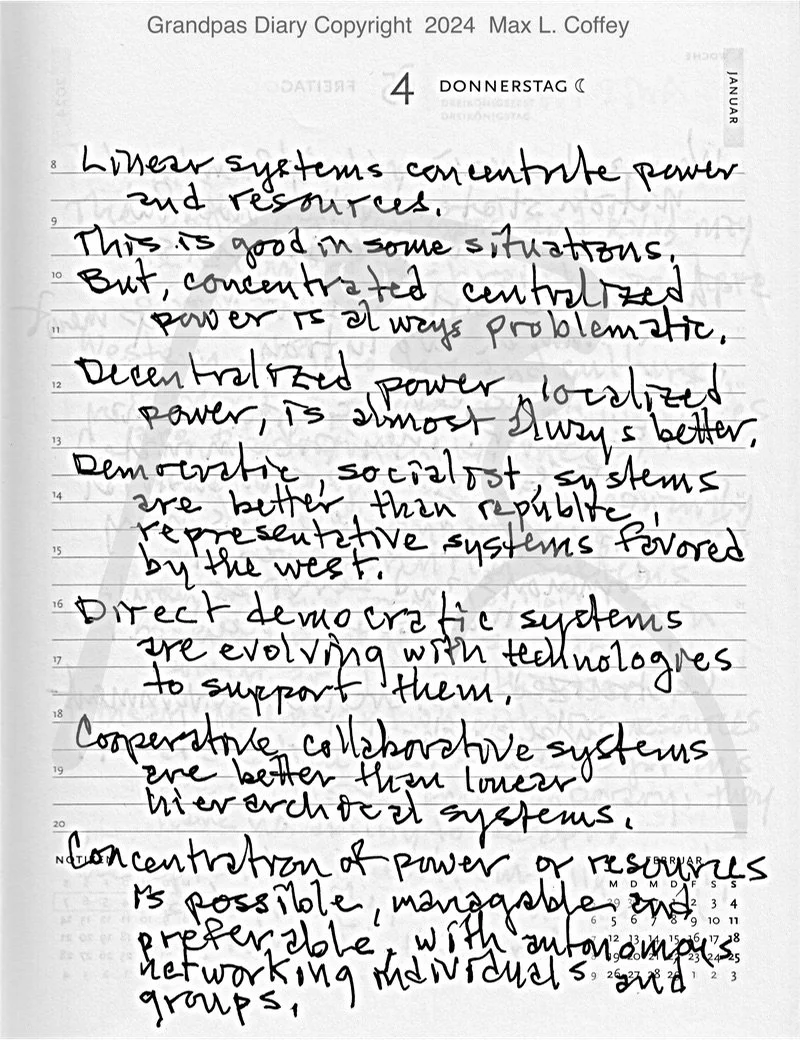 Grandpas Diary Copyright 2024 Max L. Coffey
4 DONNERSTAG
JANUAR
8 Linear systems concentrate power
and resources.
9
This is good in some situations.
10 But, concentrated centralized
power is always problematic.
11
Decentralized power, localized
12
power, is almost always better.
13
Democratic, socialist, systems
14 are better than republic,
representative systems favored
15 by the west.
16 Direct democratic systems
are evolving with technologies
17
to support them.
18
Cooperative, collaborative systems
19 are better than linear
hierarchical systems.
20
NOTIZEN
Concentration of power or resources
FEBRUAR
is possible, manageable and
preferable, with autonomous
networking individuals and
groups.